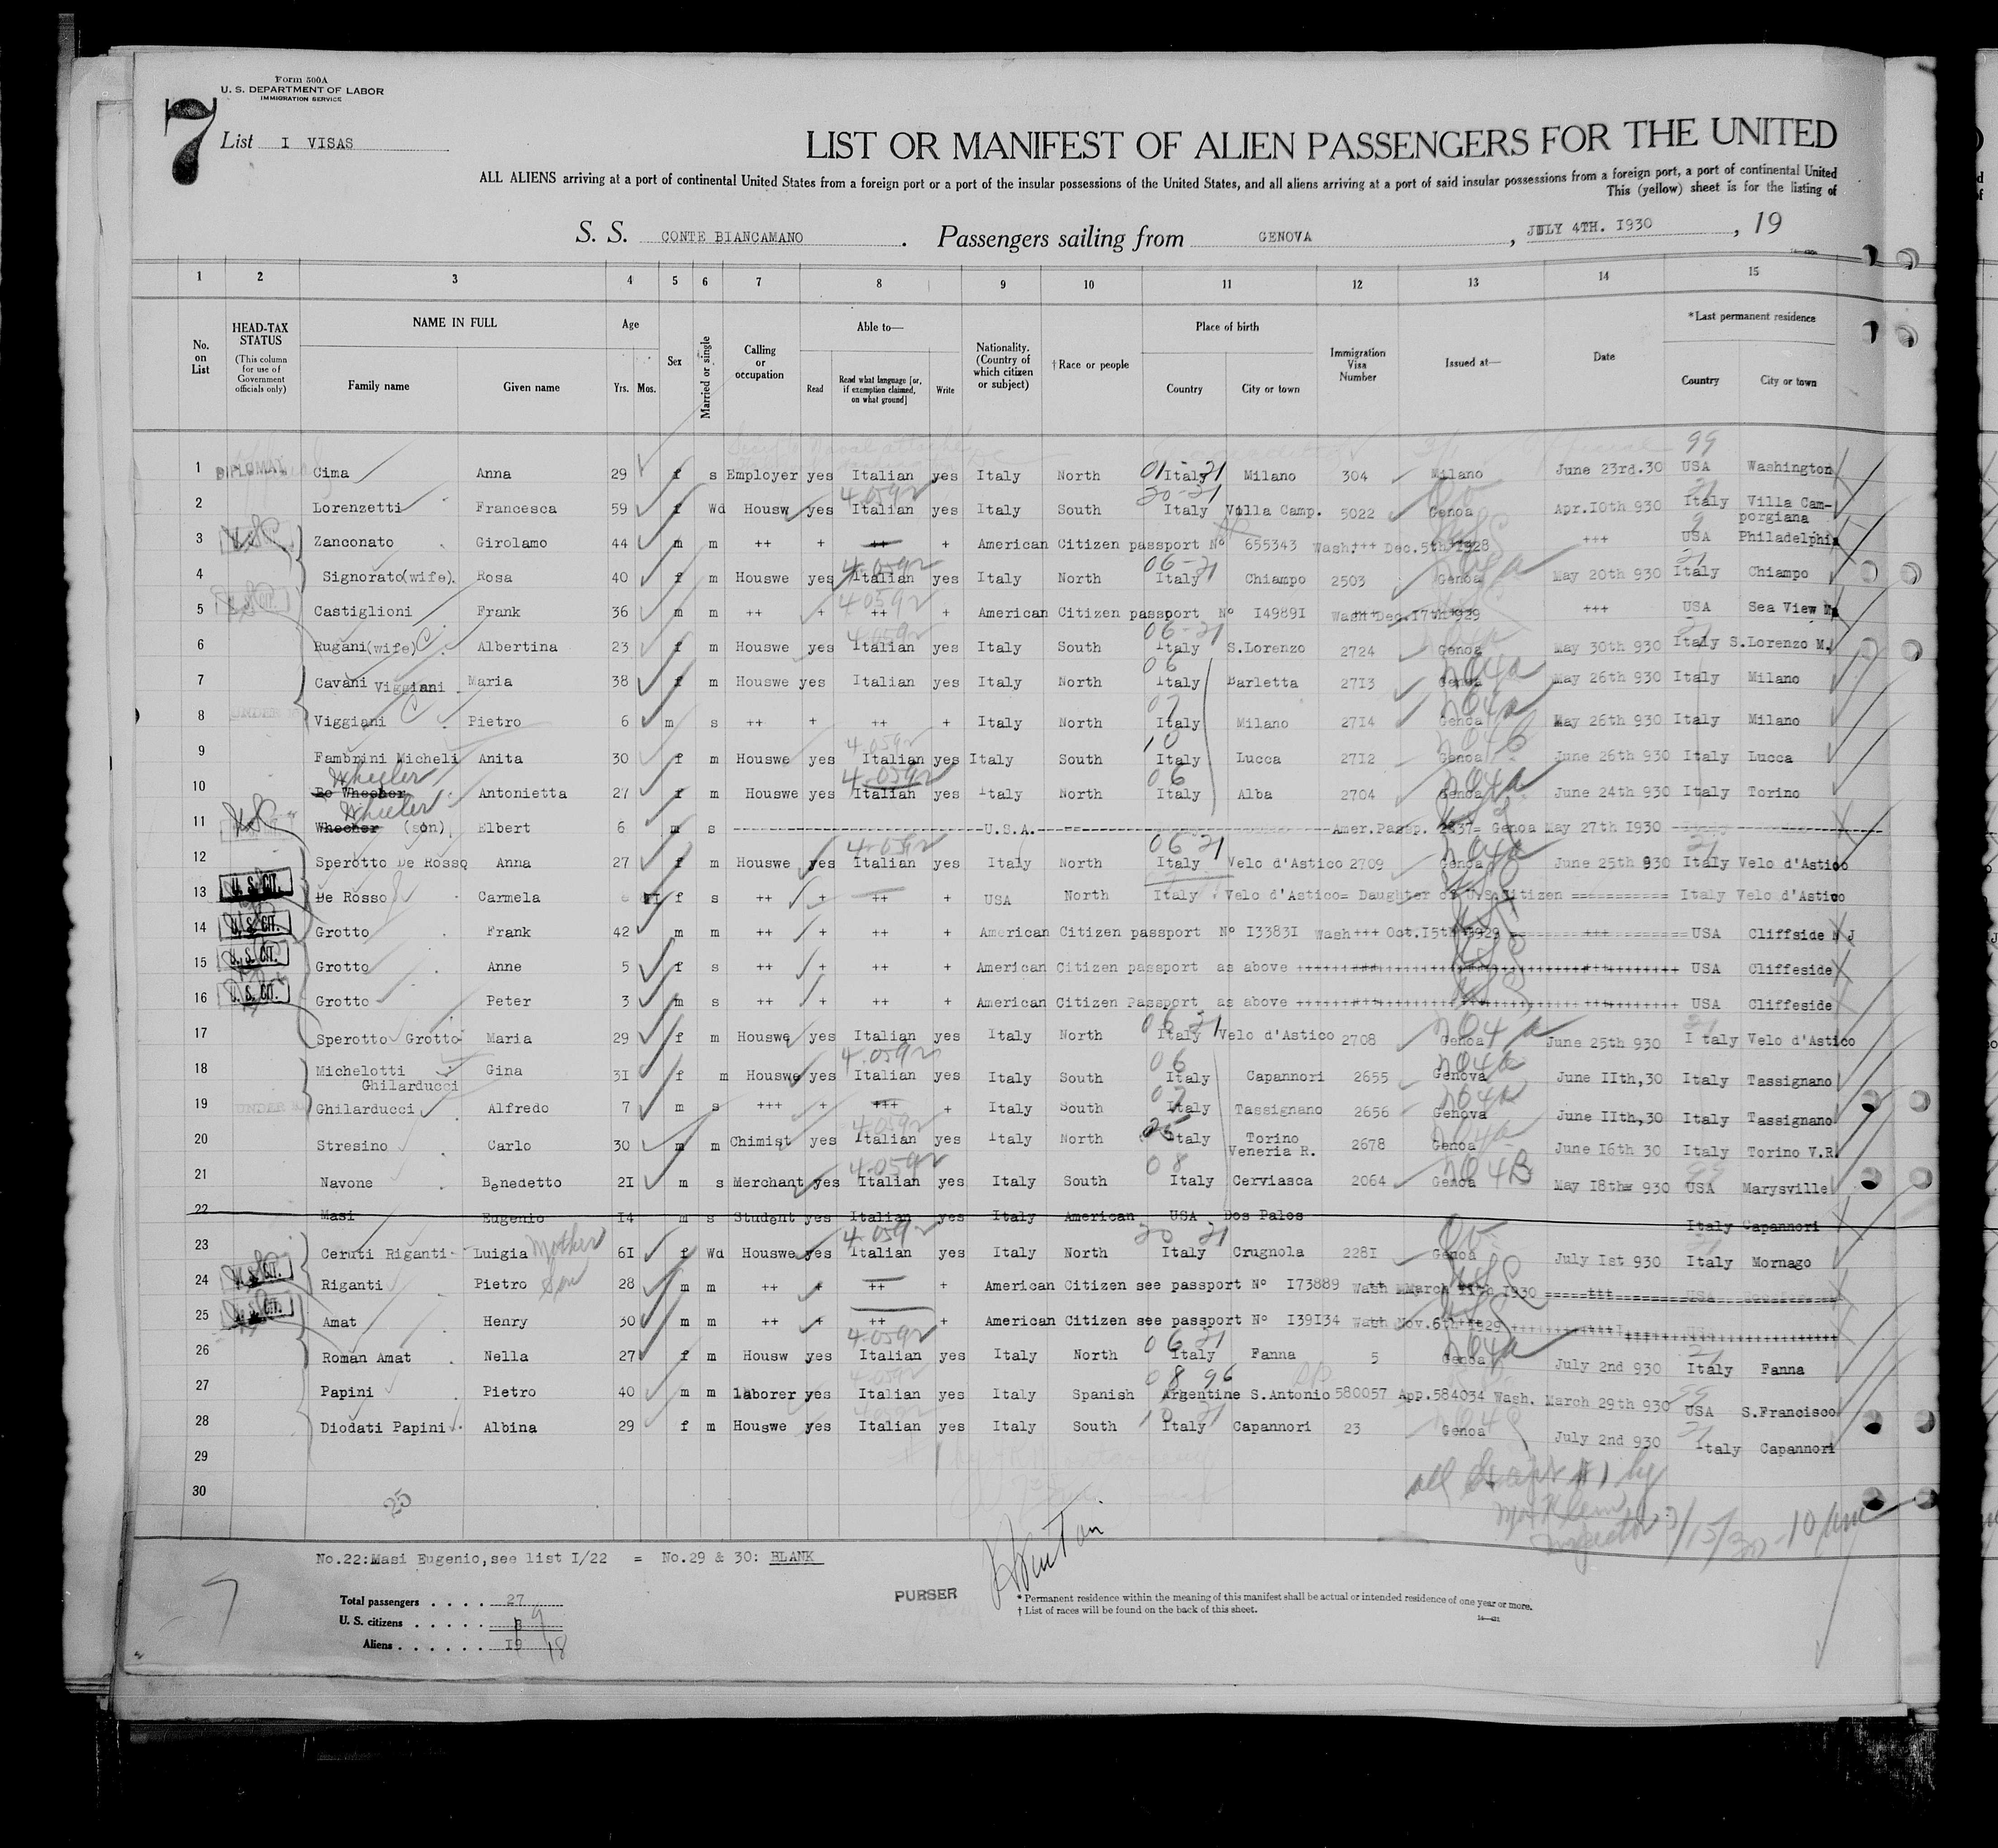 Form 500A
U. S. DEPARTMENT OF LABOR
IMMIGRATION SERVICE
7
List I VISAS
LIST OR MANIFEST OF ALIEN PASSENGERS FOR THE UNITED
ALL ALIENS arriving at a port of continental United States from a foreign port or a port of the insular possessions of the United States, and all aliens arriving at a port of said insular possessions from a foreign port, a port of continental United
This (yellow) sheet is for the listing of
S. S. CONTE BIANCAMANO . Passengers sailing from GENOVA , JULY 4TH. I930 , 19
1 2 3 4 5 6 7 8 9 10 11 12 13 14 15
No. on List
HEAD-TAX STATUS
(This column for use of Government officials only)
NAME IN FULL
Family name Given name
Age
Yrs. Mos.
Sex
Married or single
Calling or occupation
Able to—
Read Read what language [or, if exemption claimed, on what ground] Write
Nationality. (Country of which citizen or subject)
† Race or people
Place of birth
Country City or town
Immigration Visa Number
Issued at—
Date
*Last permanent residence
Country City or town
99
1 DIPLOMAT Cima Anna 29 f s Employer yes Italian yes Italy North 01-21 Italy Milano 304 Milano June 23rd.30 USA Washington
2 Lorenzetti Francesca 59 f Wd Housw yes Italian yes Italy South 20-21 Italy Villa Camp. 5022 Genoa Apr.I0th 930 Italy Villa Cam-
porgiana
3 Zanconato Girolamo 44 m m ++ + ++ + American Citizen passport Nº 655343 Wash+++ Dec.5th I928 +++ USA Philadelphia
4 Signorato(wife). Rosa 40 f m Houswe yes Italian yes Italy North 06-21 Italy Chiampo 2503 Genoa May 20th 930 Italy Chiampo
5 Castiglioni Frank 36 m m ++ + ++ + American Citizen passport Nº I4989I Wash Dec.I7th I929 +++ USA Sea View
6 Rugani(wife) C Albertina 23 f m Houswe yes Italian yes Italy South 06-21 Italy S.Lorenzo 2724 Genoa May 30th 930 Italy S.Lorenzo M.
7 Cavani Viggiani Maria 38 f m Houswe yes Italian yes Italy North 06 Italy Barletta 27I3 Genoa May 26th 930 Italy Milano
8 UNDER Viggiani C Pietro 6 m s ++ + ++ + Italy North 07 Italy Milano 27I4 Genoa May 26th 930 Italy Milano
9 Fambrini Micheli Anita 30 f m Houswe yes Italian yes Italy South 10 Italy Lucca 27I2 Genoa June 26th 930 Italy Lucca
Wheeler
10 De Whecher Antonietta 27 f m Houswe yes Italian yes Italy North 06 Italy Alba 2704 Genoa June 24th 930 Italy Torino
Wheeler
11 Whecher (son) Elbert 6 m s U.S.A. Amer.Passp. 2837= Genoa May 27th I930
12 Sperotto De Rosso Anna 27 f m Houswe yes Italian yes Italy North 06 21 Italy Velo d'Astico 2709 Genoa June 25th 930 Italy Velo d'Astico
13 U. S. CIT. De Rosso Carmela f s ++ + ++ + USA North Italy Velo d'Astico= Daughter of U.S.Citizen =========== Italy Velo d'Astico
14 U. S. CIT. Grotto Frank 42 m m ++ + ++ + American Citizen passport Nº I3383I Wash+++ Oct.I5th I929 USA Cliffside N J
15 U. S. CIT. Grotto Anne 5 f s ++ + ++ + American Citizen passport as above USA Cliffeside
16 U. S. CIT. Grotto Peter 3 m s ++ + ++ + American Citizen Passport as above USA Cliffeside
17 Sperotto Grotto Maria 29 f m Houswe yes Italian yes Italy North 06 21 Italy Velo d'Astico 2708 Genoa June 25th 930 Italy Velo d'Astico
18 Michelotti Gina 3I f m Houswe yes Italian yes Italy South 06 Italy Capannori 2655 Genova June IIth,30 Italy Tassignano
Ghilarducci
19 UNDER Ghilarducci Alfredo 7 m s +++ + +++ + Italy South 07 Italy Tassignano 2656 Genova June IIth,30 Italy Tassignano
20 Stresino Carlo 30 m m Chimist yes Italian yes Italy North 25 Italy Torino 2678 Genoa June I6th 30 Italy Torino V.R.
Veneria R.
21 Navone Benedetto 2I m s Merchant yes Italian yes Italy South 08 Italy Cerviasca 2064 Genoa May I8th= 930 USA Marysville
22 Masi Eugenio I4 m s Student yes Italian yes Italy American USA Dos Palos Italy Capannori
23 Ceruti Riganti Luigia Mother 6I f Wd Houswe yes Italian yes Italy North 20 21 Italy Crugnola 228I Genoa July Ist 930 Italy Mornago
24 U. S. CIT. Riganti Pietro Son 28 m m ++ + ++ + American Citizen see passport Nº I73889 Wash March IIth I930 USA
25 U. S. CIT. Amat Henry 30 m m ++ + ++ + American Citizen see passport Nº I39I34 Wash Nov.6th I929
26 Roman Amat Nella 27 f m Housw yes Italian yes Italy North 06 21 Italy Fanna 5 Genoa July 2nd 930 Italy Fanna
27 Papini Pietro 40 m m laborer yes Italian yes Italy Spanish 08 96 Argentine S.Antonio 580057 App.584034 Wash. March 29th 930 USA S.Francisco
28 Diodati Papini Albina 29 f m Houswe yes Italian yes Italy South 10 21 Italy Capannori 23 Genoa July 2nd 930 Italy Capannori
29
30
25
all except #1 by
Inspector 7/15/30 - 10 am
No.22:Masi Eugenio,see list I/22 = No.29 & 30: BLANK
PURSER
Total passengers . . . . 27
U. S. citizens . . . . . 8 9
Aliens . . . . . . I9 18
* Permanent residence within the meaning of this manifest shall be actual or intended residence of one year or more.
† List of races will be found on the back of this sheet.